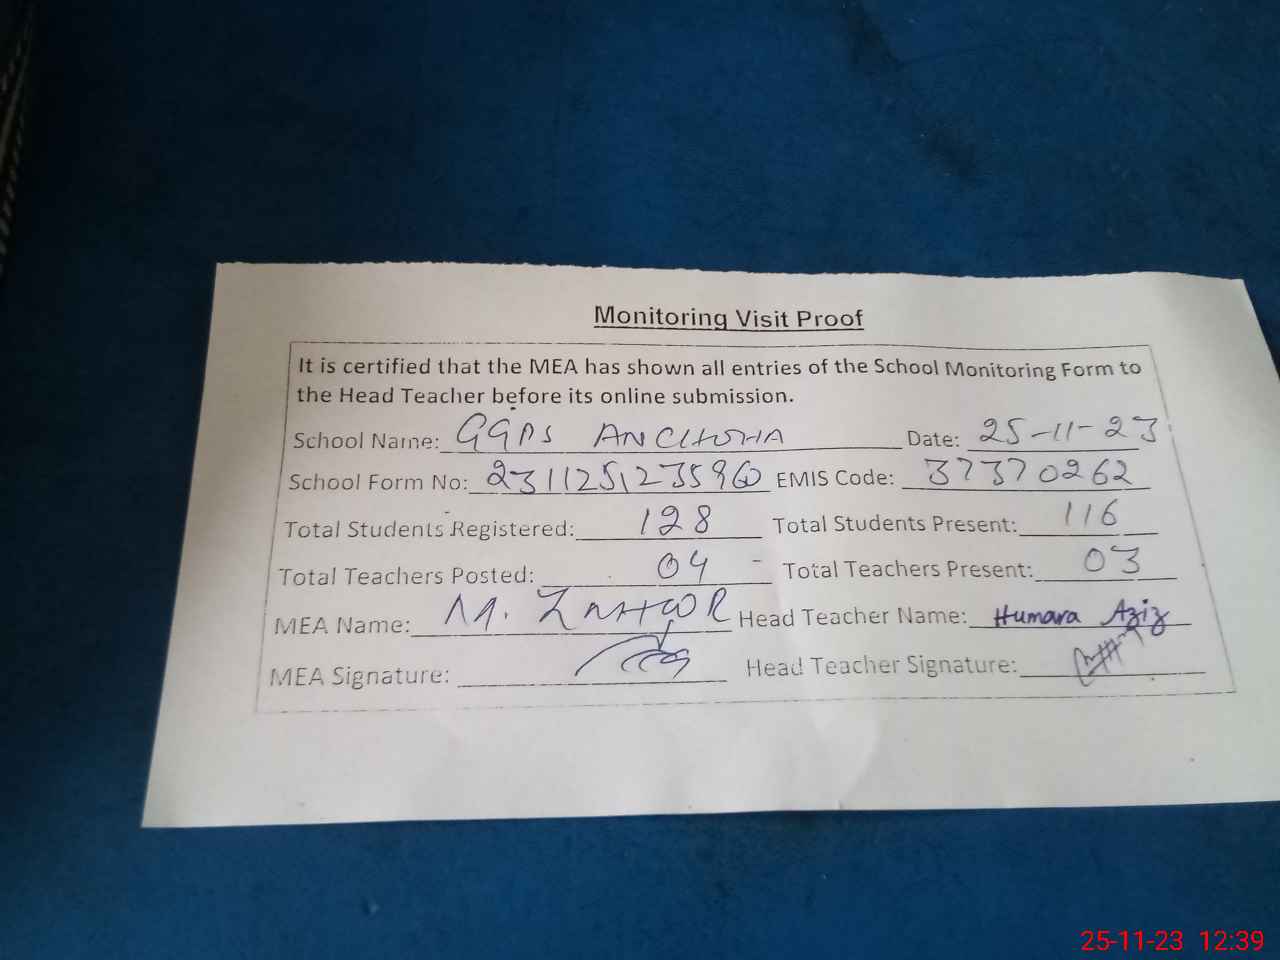 Monitoring Visit Proof
It is certified that the MEA has shown all entries of the School Monitoring Form to
the Head Teacher before its online submission.
School Name: GGPS ANCHOHA Date: 25-11-23
School Form No: 2311251235960 EMIS Code: 37370262
Total Students Registered: 128 Total Students Present: 116
Total Teachers Posted: 04 Total Teachers Present: 03
MEA Name: M. ZAHOOR Head Teacher Name: Humara Aziz
MEA Signature: Head Teacher Signature:
25-11-23 12:39